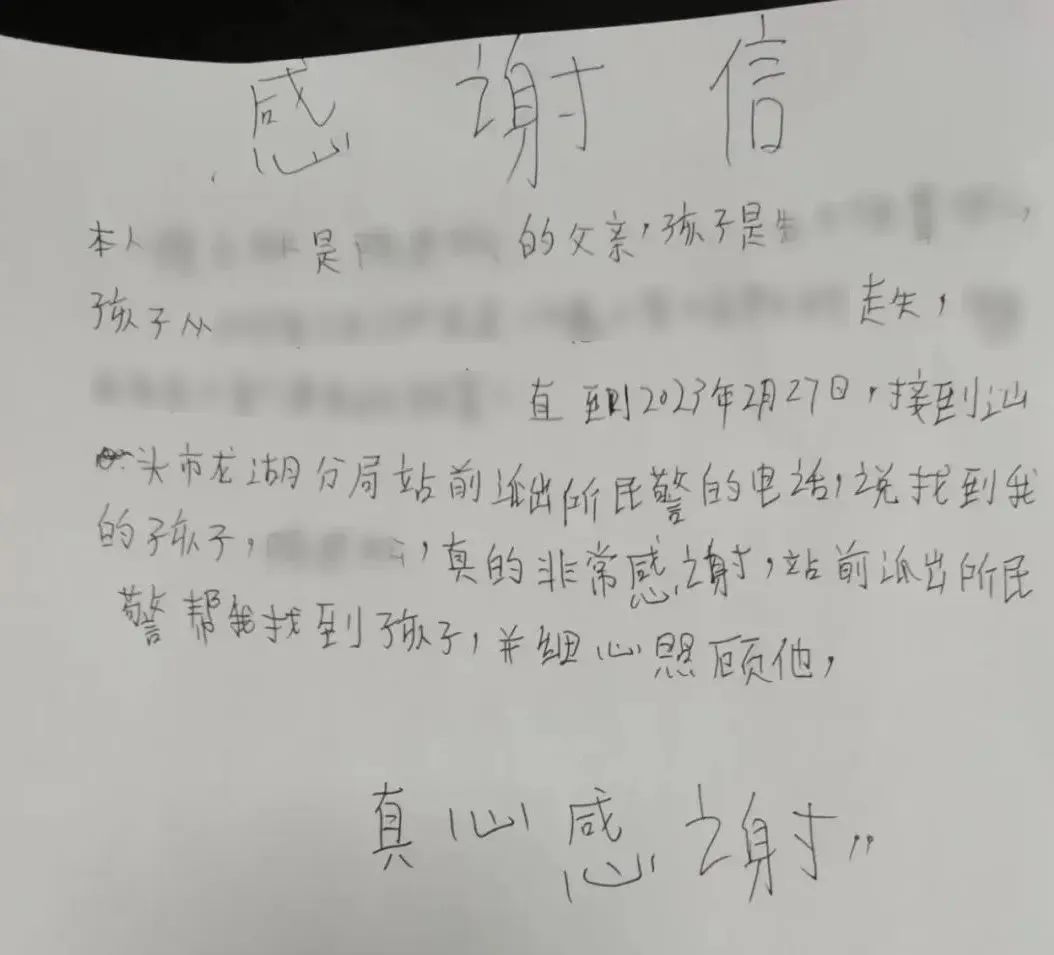 感谢信
本人 是 的父亲,孩子是
孩子从 走失,
直至到2023年2月27日,接到汕
头市龙湖分局站前派出所民警的电话,说找到我
的孩子, ,真的非常感谢,站前派出所民
警帮我找到孩子,并细心照顾他,
真心感谢,,